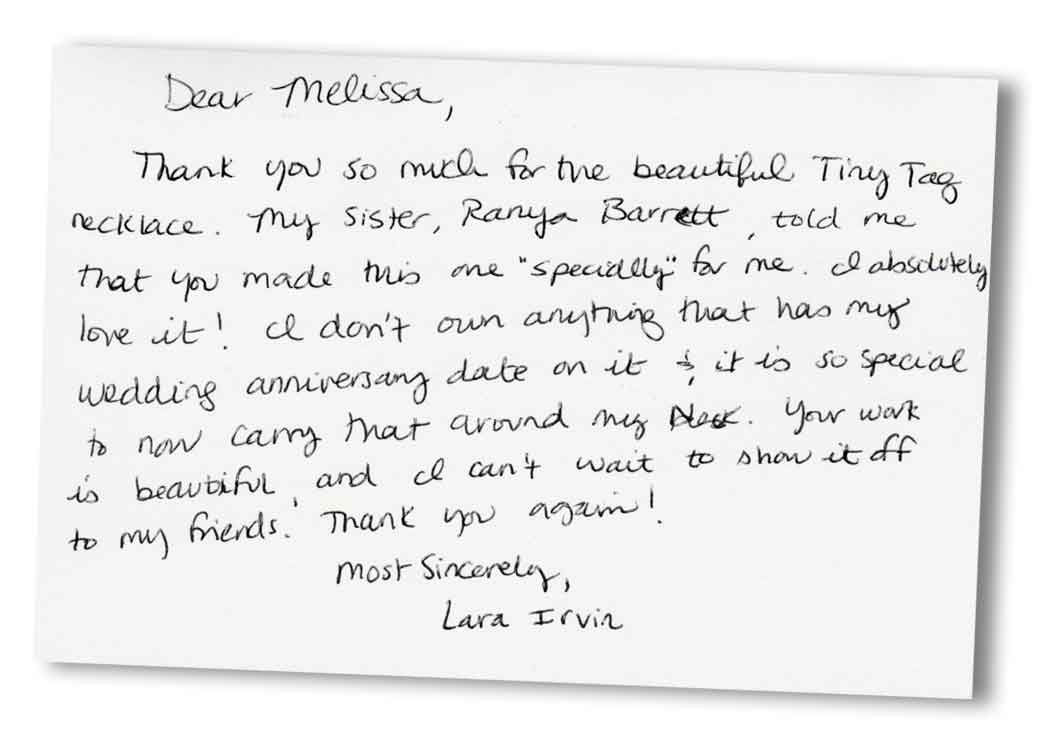 Dear Melissa,
Thank you so much for the beautiful Tiny Tag
necklace. My sister, Ranya Barrett, told me
that you made this one "specially" for me. I absolutely
love it! I don't own anything that has my
wedding anniversary date on it & it is so special
to now carry that around my neck. Your work
is beautiful, and I can't wait to show it off
to my friends. Thank you again!
Most Sincerely,
Lara Irvin